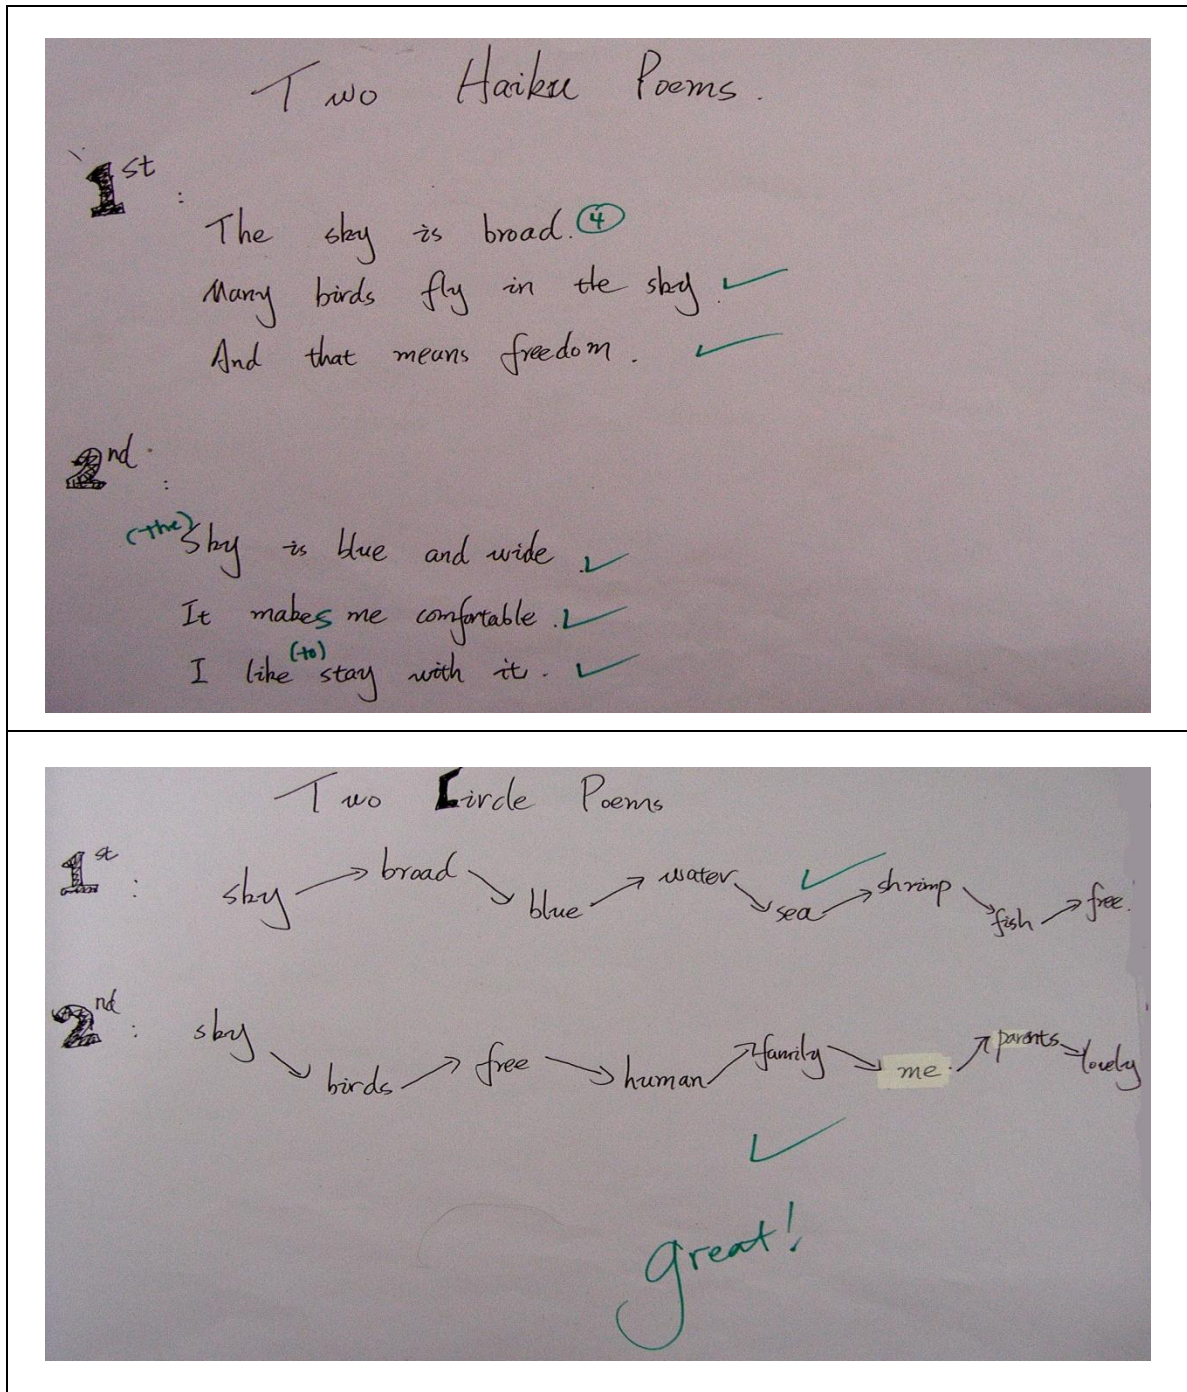 Two Haiku Poems.
1st :
The sky is broad. 4
Many birds fly in the sky.
And that means freedom.
2nd :
(the) Sky is blue and wide.
It makes me comfortable.
I like (to) stay with it.
Two Circle Poems
1st : sky → broad → blue → water → sea → shrimp → fish → free.
2nd : sky → birds → free → human → family → me. → parents → lovely
great!